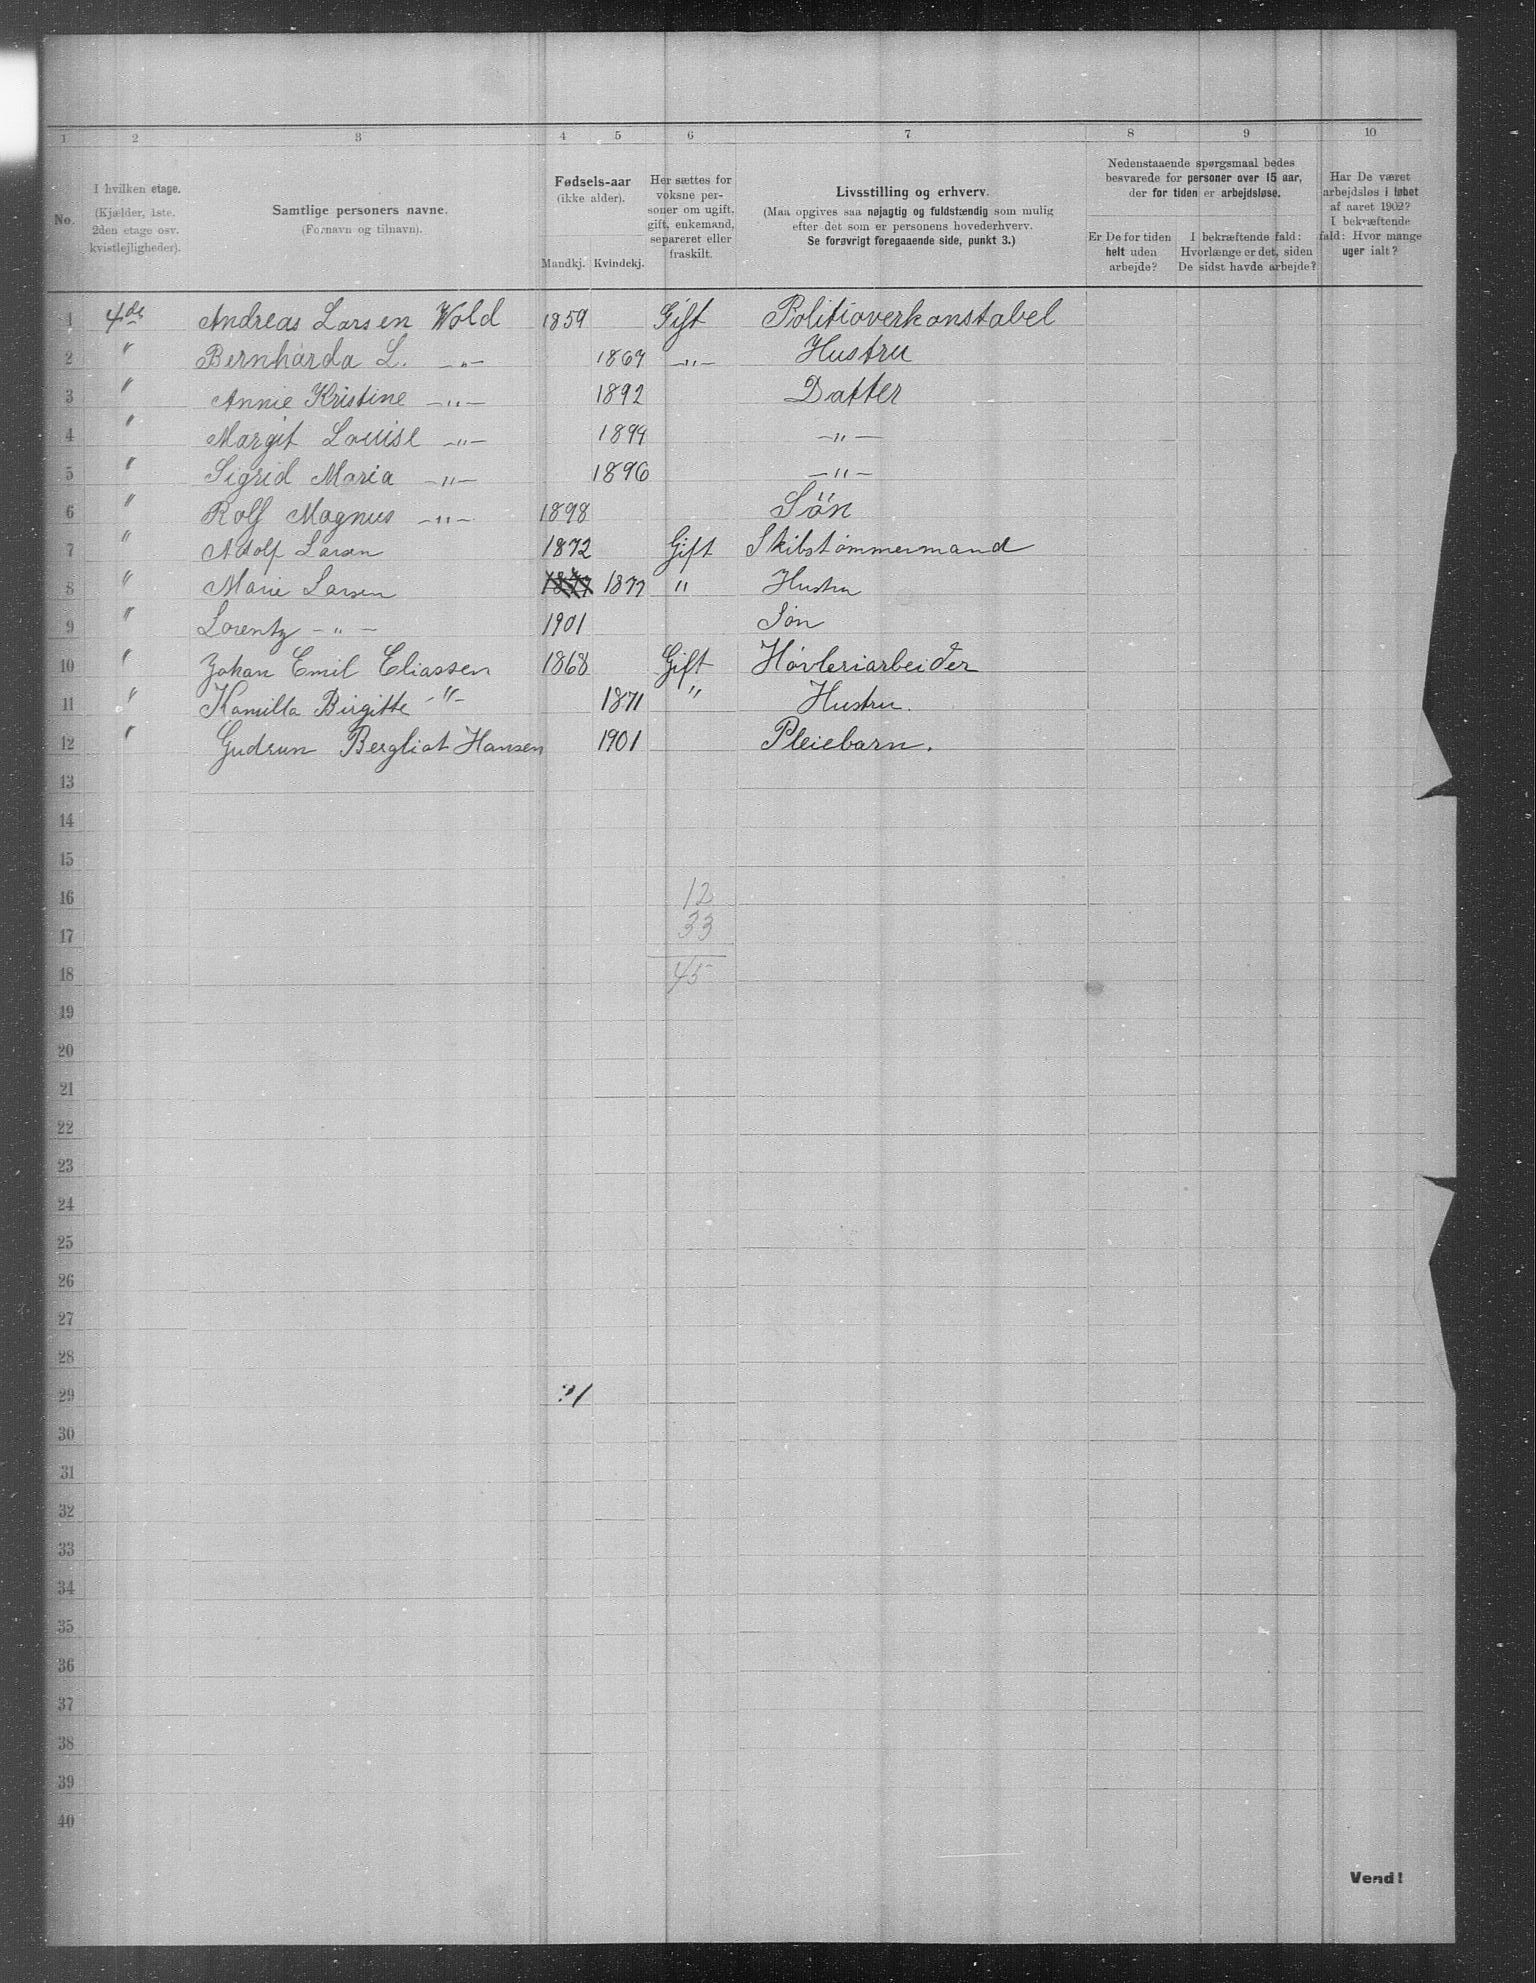 1 2 3 4 5 6 7 8 9 10
No.
I hvilken etage.
(Kjælder, 1ste.
2den etage osv.
kvistlejligheder).
Samtlige personers navne.
(Fornavn og tilnavn).
Fødsels-aar
(ikke alder).
Mandkj. Kvindekj.
Her sættes for
voksne per-
soner om ugift,
gift, enkemand,
separeret eller
fraskilt.
Livsstilling og erhverv.
(Maa opgives saa nøjagtig og fuldstændig som mulig
efter det som er personens hovederhverv.
Se forøvrigt foregaaende side, punkt 3.)
Nedenstaaende spørgsmaal bedes
besvarede for personer over 15 aar,
der for tiden er arbejdsløse.
Er De for tiden
helt uden
arbejde?
I bekræftende fald:
Hvorlænge er det, siden
De sidst havde arbejde?
Har De været
arbejdsløs i løbet
af aaret 1902?
I bekræftende
fald: Hvor mange
uger ialt?
1 4de Andreas Larsen Wold 1859 Gift Politioverkonstabel
2 " Bernharda L. —"— —"— Hustru
3 " Annie Kristine —"— 1892 Datter
4 " Margit Louise —"— 1894 —"—
5 " Sigrid Maria —"— 1896 —"—
6 " Rolf Magnus —"— 1898 Sön
7 " Adolf Larsen 1872 Gift Skibstømmermand
8 " Marie Larsen 1877 1877 " Hustru
9 " Lorentz —"— 1901 Søn
10 " Johan Emil Eliassen 1868 Gift Høvleriarbeider
11 " Kamilla Birgitte —"— 1871 " Hustru.
12 " Gudrun Bergliot Hansen 1901 Pleiebarn.
13
14
15
16 12
17 33
18 45
19
20
21
22
23
24
25
26
27
28
29
30
31
32
33
34
35
36
37
38
39
40
Vend!